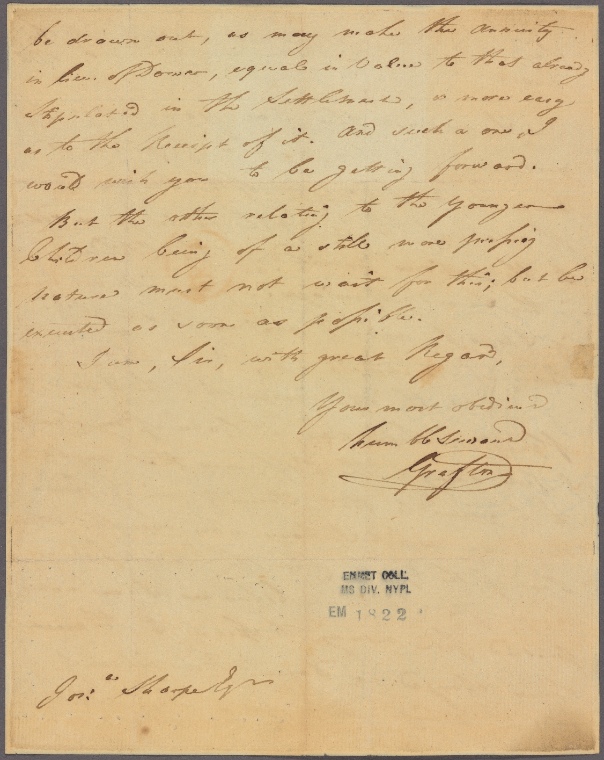 be drawn out, as may make the annuity
in lieu of Dower, equal in Value to that already
stipulated in the Settlement, & more easy
as to the Receipt of it. And such a one, I
would wish you to be getting forward.
But the other relating to the Younger
Children being of a still more pressing
nature must not wait for this; but be
executed as soon as possible.
I am, Sir, with great Regard,
Your most obedient
humble Servant
Grafton
EMMET COLL.
MS DIV. NYPL
EM 1822
Jos:as Sharpe Esqr